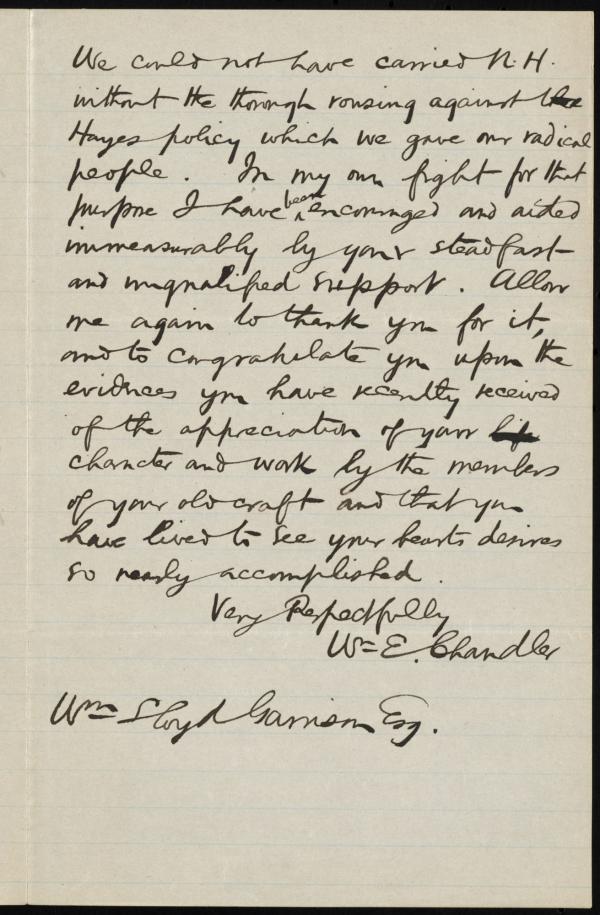 We could not have carried N.H.
without the thorough rousing against the
Hayes policy which we gave our radical
people. In my own fight for that
purpose I have been encouraged and aided
immeasurably by your steadfast
and unqualified support. Allow
me again to thank you for it,
and to congratulate you upon the
evidences you have recently received
of the appreciation of your life
character and work by the members
of your old craft and that you
have lived to see your hearts desires
so nearly accomplished.
Very Respectfully
Wm E. Chandler
Wm Lloyd Garrison Esq.